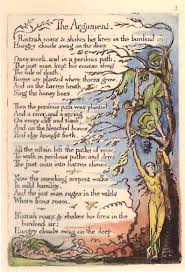 The Argument.
Rintrah roars & shakes his fires in the burdend air
Hungry clouds swag on the deep
Once meek, and in a perilous path,
The just man kept his course along
The vale of death.
Roses are planted where thorns grow,
And on the barren heath
Sing the honey bees.
Then the perilous path was planted:
And a river, and a spring
On every cliff and tomb;
And on the bleached bones
Red clay brought forth.
Till the villain left the paths of ease,
To walk in perilous paths, and drive
The just man into barren climes.
Now the sneaking serpent walks
In mild humility.
And the just man rages in the wilds
Where lions roam.
Rintrah roars & shakes his fires in the
burdend air;
Hungry clouds swag on the deep.